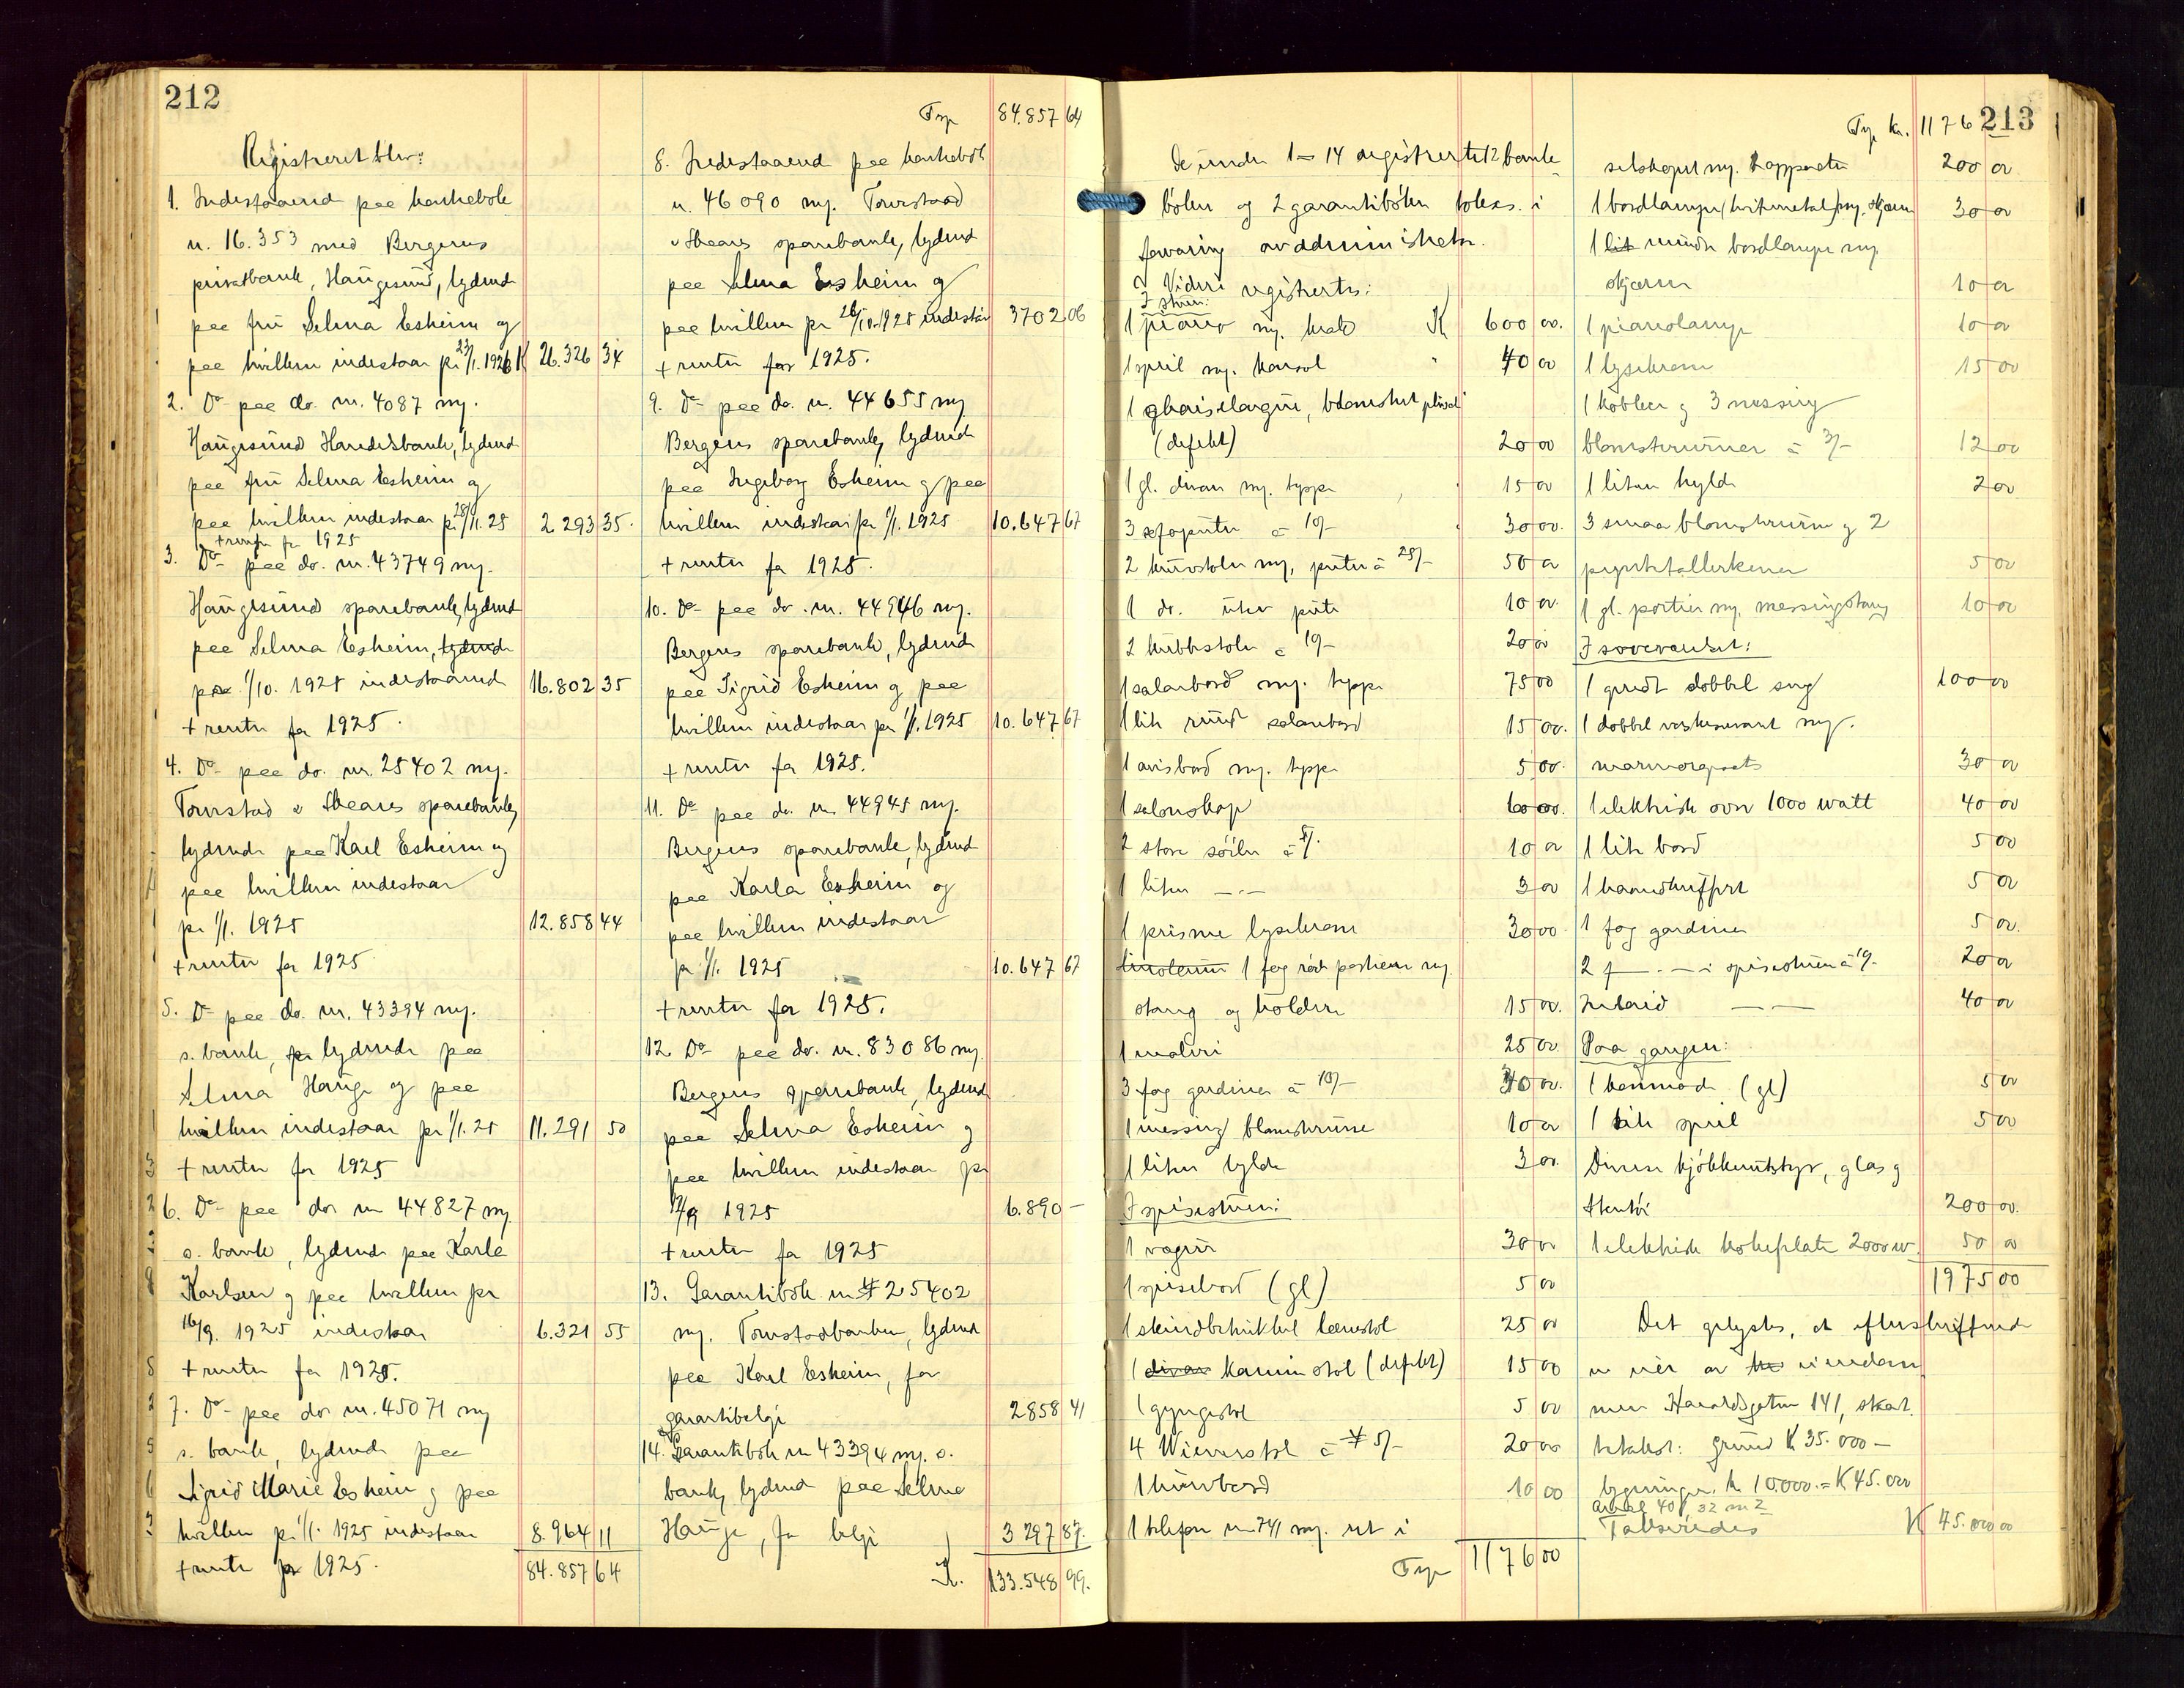 212
Registreret blev:
1. Indestaaend paa bankebok
n. 16.353 med Bergens
privatbank, Haugesund, lydend
paa fru Selma Esheim og
paa hvillen indestaar pr 23/1. 1926 K 26.326 34
2. Do paa do. nr. 4087 my.
Haugesund Handelsbank, lydend
paa fru Selma Esheim og
paa hvillen indestaar pr 28/11. 25 2 293 35
+ renter for 1925
3. Do paa do. nr. 43749 my.
Haugesund sparebank, lydend
paa Selma Esheim, lydend
paa 1/10. 1925 indestaaend 16.802 35
+ renter for 1925.
4. Do paa do. nr. 25402 my.
Torvestad & Skaares sparebank,
lydende paa Karl Esheim og
paa hvillen indestaar
pr 1/1. 1925 12.858 44
+ renter for 1925
5. Do paa do. nr. 43394 my.
s. bank, lydende paa
Selma Hauge og paa
hvillen indestaar pr 1/1. 25 11.291 50
+ renter for 1925
6. Do paa do nr 44827 my
s. bank, lydende paa Karla
Karlsen og paa hvillen pr
16/9. 1925 indestaar 6.321 55
+ renter for 1925.
7. Do paa do nr. 45071 my
s. bank, lydende paa
Sigrid Marie Esheim og paa
hvillen pr 1/1. 1925 indestaar 8.964 11
+ rente for 1925. 84.857 64
Trsp 84.857 64
8. Indestaaend paa bankebok
n. 46090 my. Torvestad
& Skaares sparebank, lydend
paa Selma Esheim og
paa hvillen pr 26/10. 1925 indestår 3702 06
+ renter for 1925.
9. Do paa do. n. 44655 my
Bergens sparebank, lydend
paa Ingeborg Esheim og paa
hvillen indestaar pr 1/1. 1925 10.647 67
+ renter for 1925.
10. Do paa do. nr. 44946 my.
Bergens sparebank, lydend
paa Sigrid Esheim og paa
hvillen indestaar pr 1/1. 1925 10.647 67
+ renter for 1925.
11. Do paa do. nr 44945 my.
Bergens sparebank, lydend
paa Karla Esheim og
paa hvillen indestaar
pr 1/1. 1925 10.647 67
+ renter for 1925.
12. Do paa do. nr. 83086 my.
Bergens sparebank, lydend
paa Selma Esheim og
paa hvillen indestaar pr
1925 6.890 –
+ renter for 1925
13. Garantibok nr 25402
my. Torvestadbanken, lydend
paa Karl Esheim, for
garantibeløp 2858 41
14. Garantibok nr 43394 my. s.
bank, lydend paa Selma
Hauge, for beløp 3297 87.
K. 133.548 99.
De under 1–14 registrerte 12 bank-
bøker og 2 garantibøker tokes i
forvaring av administrator.
Videre registrertes:
I stuen:
1 piano my. krak K 600 00.
1 speil my. konsol " 40 00
1 chaiselongue, blomstret plüsch
(defekt) 20 00
1 gl. divan my. teppe 15 00
3 sofaputer à 10/- 30 00.
2 kurvstoler my. puter à 25/- 50 00
1 do. uten pute 10 00.
2 kubbstoler à 10/- 20 00
1 salonbord my. teppe 75 00
1 lite rundt salonbord 15 00.
1 avisbord my. teppe 5 00.
1 salonskap 60 00.
2 store søiler à 5/- 10 00
1 liten –"– 3 00
1 prisme lysekrone 30 00
linoleum 1 fag rød portiere my.
stang og holdere 15 00.
1 maleri 25 00.
3 fag gardiner à 10/- 30 00.
1 messing blomsterurne 10 00
1 liten hylde 3 00.
I spisestuen:
1 vogn 30 00
1 spisebord (gl) 5 00
1 skindbetrukket lænestol 25 00
1 divan kamin stol (defekt) 15 00
1 gyngestol 5 00
4 Wienerstol à 5/- 20 00
1 kurvbord 10 00
1 telefon nr 741 my. ret i
Trsp 1176 00
213
Trsp kr. 1176
selskapet my. 2 apparater 200 00
1 bordlampe (hvitmetal) my. skjærm 30 00
1 lit mindre bordlampe my.
skjærm 10 00
1 pianolampe 10 00
1 lysekrone 15 00
1 kobber og 3 messing
blomsterurner à 3/- 12 00
1 liten hylde 2 00
3 smaa blomsterurner og 2
pyntetallerkener 5 00
1 gl. portier my. messingstang 10 00
I soverommet:
1 dobbel seng 100 00
1 dobbel vaskeservant my.
marmorplate 30 00
1 elektrisk ovn 1000 watt 40 00
1 lite bord 5 00
1 haandkuffert 5 00
1 fag gardiner 5 00.
2 f –"– i spisestuen à 10/- 20 00
Inlaid –"– 40 00
Paa gangen:
1 kommode (gl) 5 00
1 lite speil 5 00
Diverse kjøkkenutstyr, glas og
stentøi 200 00.
1 elektrisk kokeplate 2000 w. 50 00
1975 00
Det oplystes, at efterskrifter
men Haraldsgaten 141, skat.
takstert: grund K 35.000 –
bygninger K 10.000. = K 45.000
areal 401,32 m2
K 45.000 00